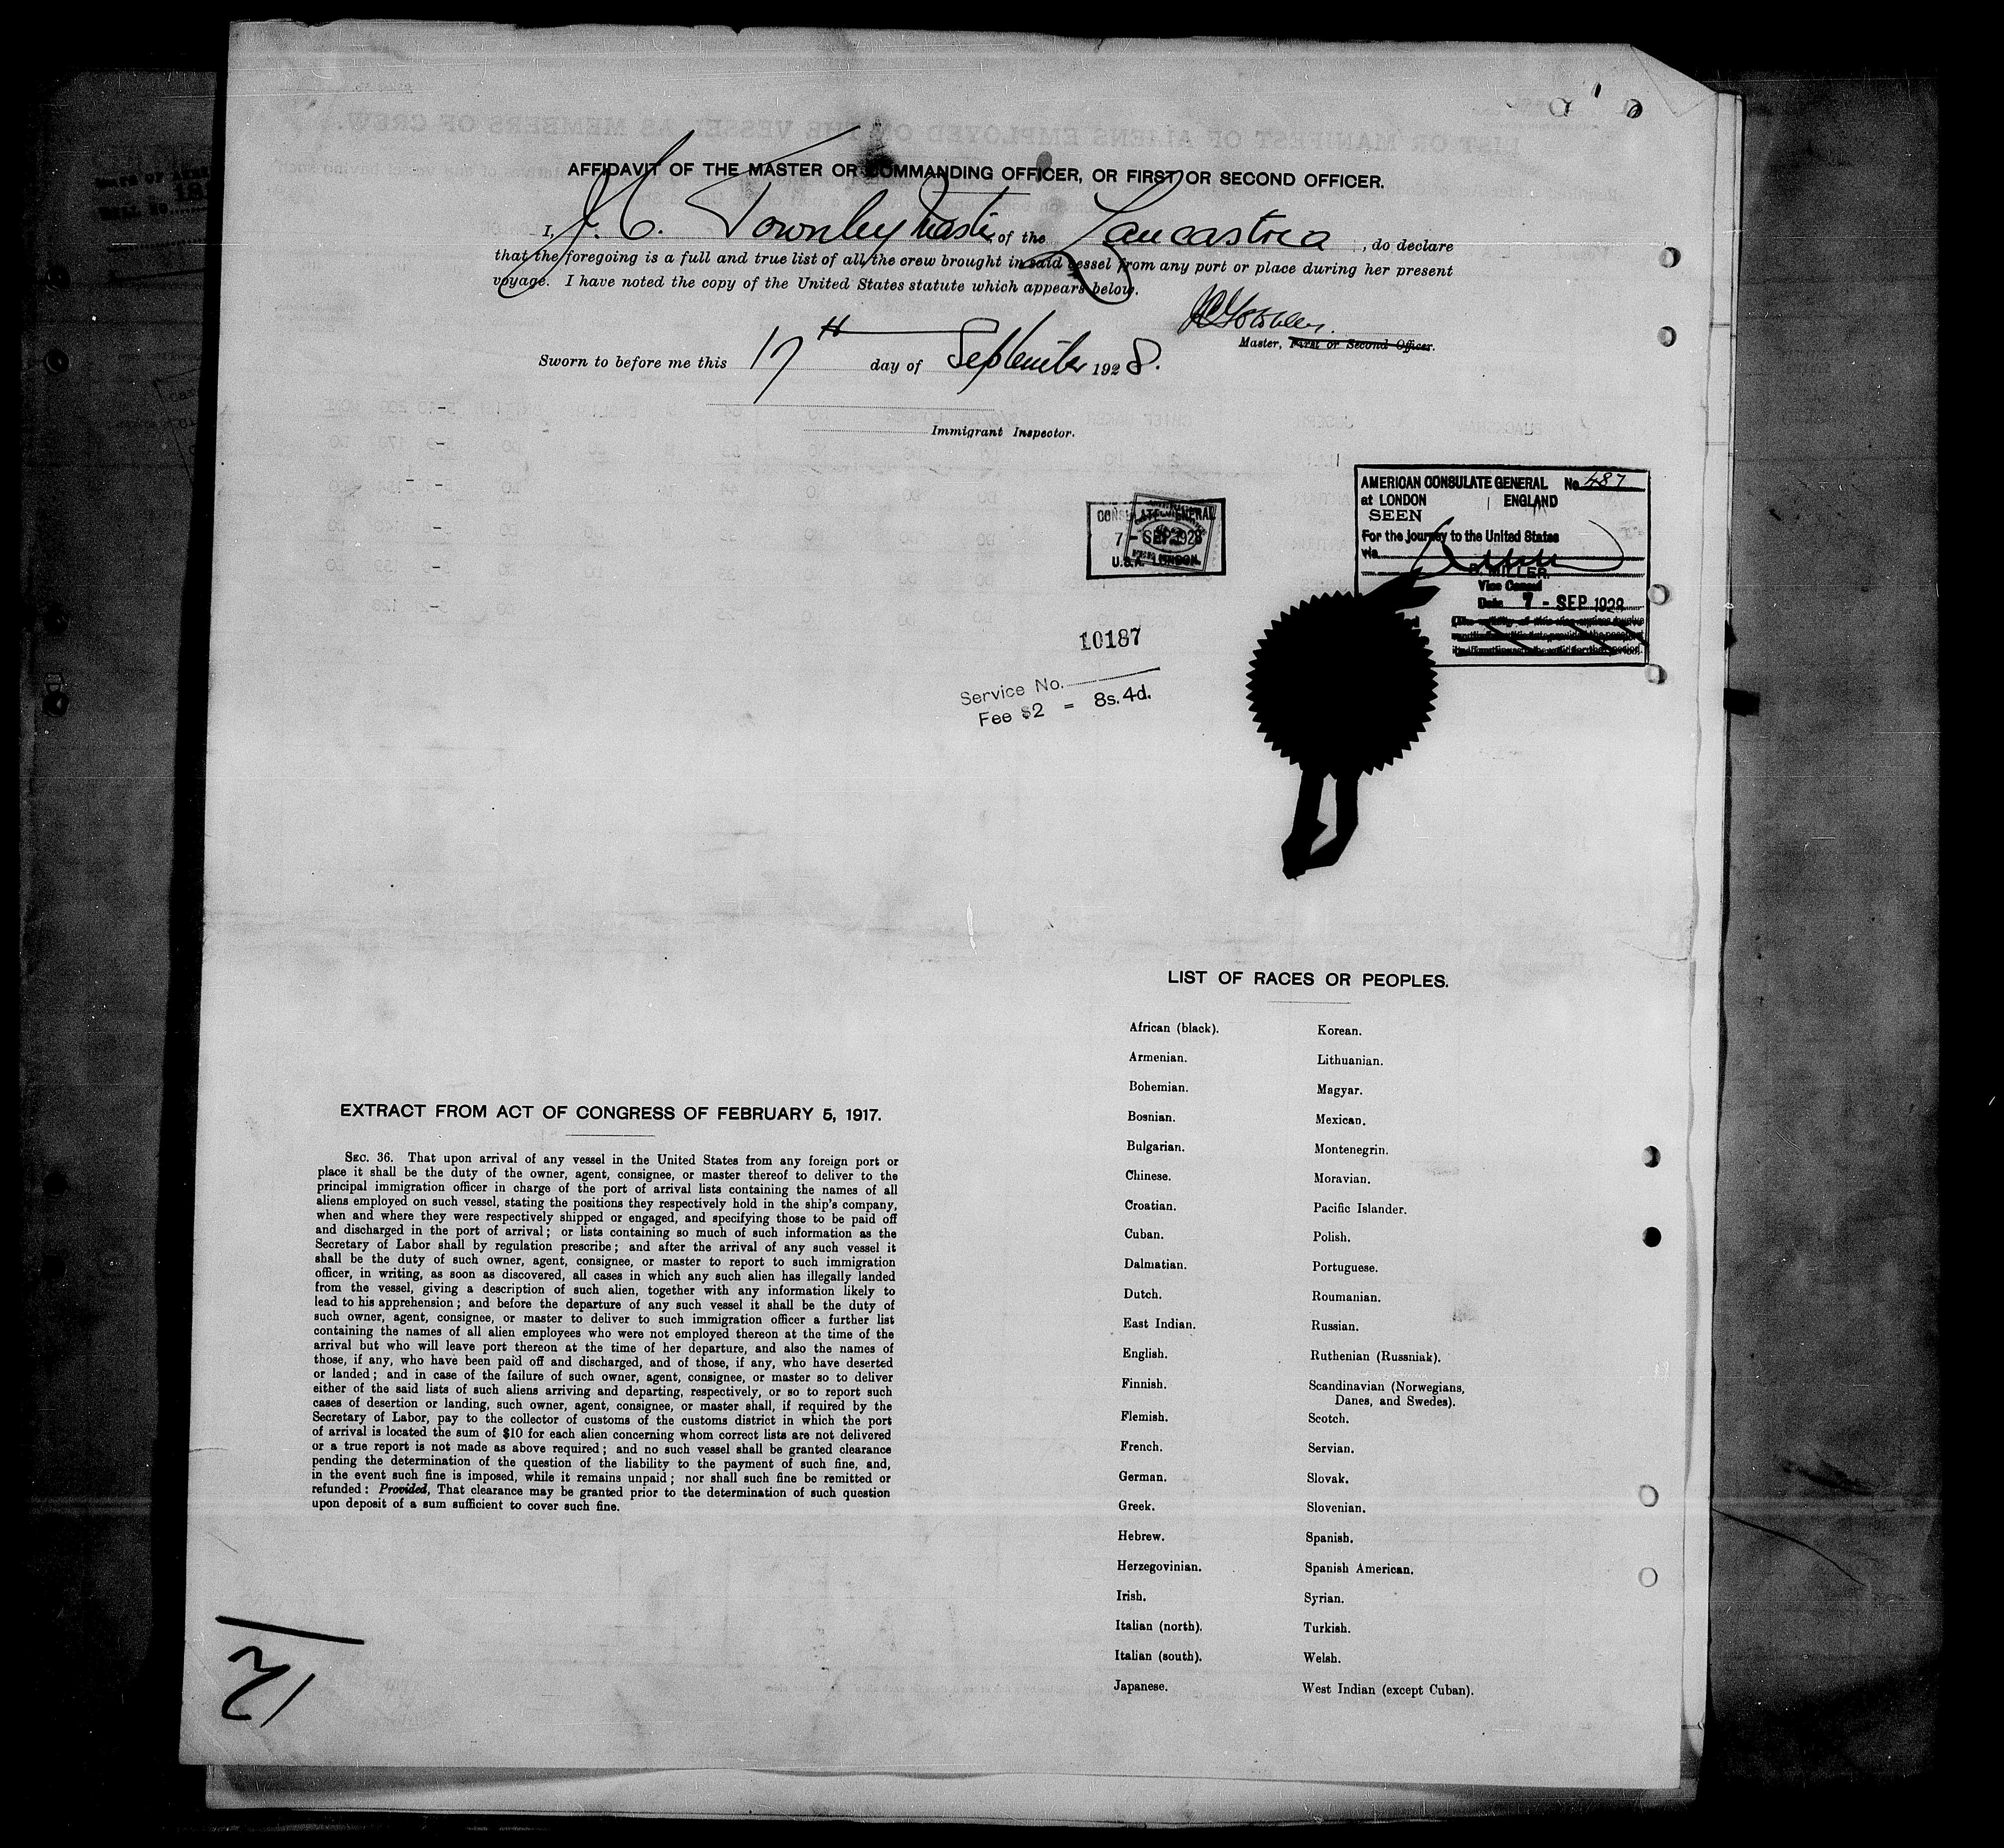 AFFIDAVIT OF THE MASTER OR COMMANDING OFFICER, OR FIRST OR SECOND OFFICER.
I, J.C. Townley Master of the Lancastria, do declare
that the foregoing is a full and true list of all the crew brought in said vessel from any port or place during her present
voyage. I have noted the copy of the United States statute which appears below.
Master, First or Second Officer.
Sworn to before me this 17th day of September 1928.
Immigrant Inspector.
AMERICAN CONSULATE GENERAL No. 487
at LONDON ENGLAND
SEEN
For the journey to the United States
via
MILLER.
Vice Consul
Date 7 - SEP 1928
CONSULATE GENERAL
7 - SEP 1928
U.S.A. LONDON.
10187
Service No.
Fee $2 = 8s. 4d.
LIST OF RACES OR PEOPLES.
African (black).
Armenian.
Bohemian.
Bosnian.
Bulgarian.
Chinese.
Croatian.
Cuban.
Dalmatian.
Dutch.
East Indian.
English.
Finnish.
Flemish.
French.
German.
Greek.
Hebrew.
Herzegovinian.
Irish.
Italian (north).
Italian (south).
Japanese.
Korean.
Lithuanian.
Magyar.
Mexican.
Montenegrin.
Moravian.
Pacific Islander.
Polish.
Portuguese.
Roumanian.
Russian.
Ruthenian (Russniak).
Scandinavian (Norwegians,
Danes, and Swedes).
Scotch.
Servian.
Slovak.
Slovenian.
Spanish.
Spanish American.
Syrian.
Turkish.
Welsh.
West Indian (except Cuban).
EXTRACT FROM ACT OF CONGRESS OF FEBRUARY 5, 1917.
SEC. 36. That upon arrival of any vessel in the United States from any foreign port or
place it shall be the duty of the owner, agent, consignee, or master thereof to deliver to the
principal immigration officer in charge of the port of arrival lists containing the names of all
aliens employed on such vessel, stating the positions they respectively hold in the ship's company,
when and where they were respectively shipped or engaged, and specifying those to be paid off
and discharged in the port of arrival; or lists containing so much of such information as the
Secretary of Labor shall by regulation prescribe; and after the arrival of any such vessel it
shall be the duty of such owner, agent, consignee, or master to report to such immigration
officer, in writing, as soon as discovered, all cases in which any such alien has illegally landed
from the vessel, giving a description of such alien, together with any information likely to
lead to his apprehension; and before the departure of any such vessel it shall be the duty of
such owner, agent, consignee, or master to deliver to such immigration officer a further list
containing the names of all alien employees who were not employed thereon at the time of the
arrival but who will leave port thereon at the time of her departure, and also the names of
those, if any, who have been paid off and discharged, and of those, if any, who have deserted
or landed; and in case of the failure of such owner, agent, consignee, or master so to deliver
either of the said lists of such aliens arriving and departing, respectively, or so to report such
cases of desertion or landing, such owner, agent, consignee, or master shall, if required by the
Secretary of Labor, pay to the collector of customs of the customs district in which the port
of arrival is located the sum of $10 for each alien concerning whom correct lists are not delivered
or a true report is not made as above required; and no such vessel shall be granted clearance
pending the determination of the question of the liability to the payment of such fine, and,
in the event such fine is imposed, while it remains unpaid; nor shall such fine be remitted or
refunded: Provided, That clearance may be granted prior to the determination of such question
upon deposit of a sum sufficient to cover such fine.
12